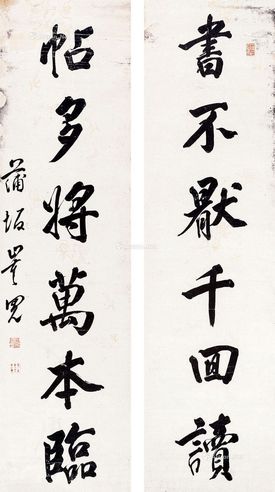 書不厭千回讀
帖多將萬本臨
蒲坂崔冕